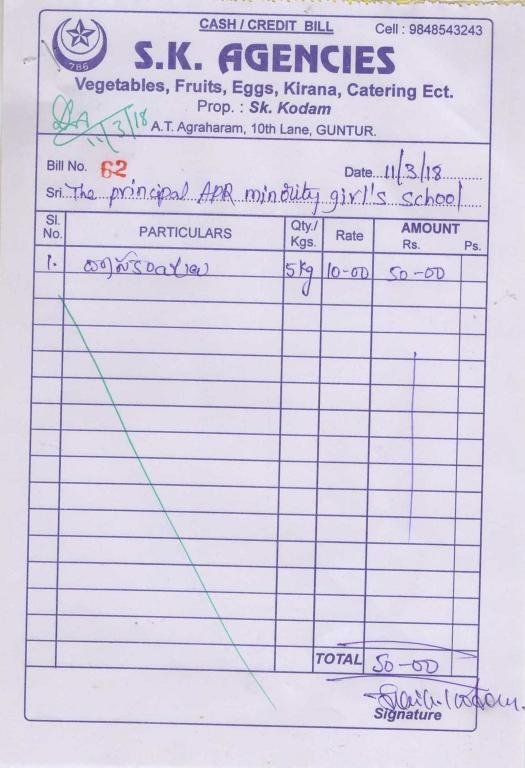 CASH / CREDIT BILL
Cell : 9848543243
786
S.K. AGENCIES
Vegetables, Fruits, Eggs, Kirana, Catering Ect.
Prop. : Sk. Kodam
11/3/18
A.T. Agraharam, 10th Lane, GUNTUR.
Bill No. 62
Date 11/3/18
Sri. The principal APR minority girl's school
Sl. No. PARTICULARS Qty./ Kgs. Rate AMOUNT Rs. Ps.
1. 5kg 10-00 50-00
TOTAL 50-00
Signature